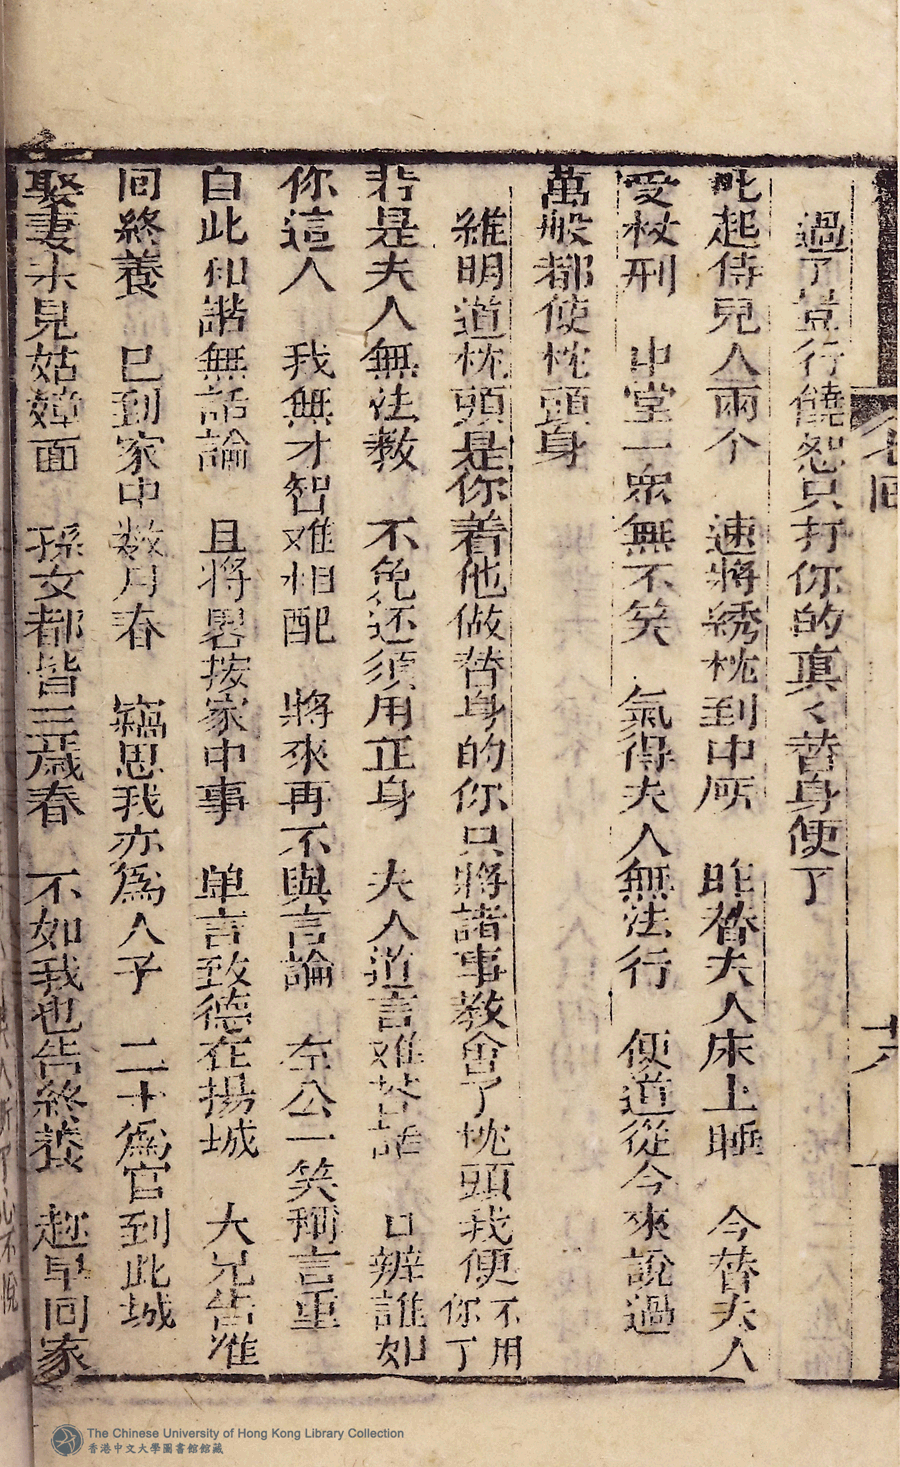 過了豈行饒恕只打你的真〻替身便了
此起侍兒人兩个　速將綉枕到中所　昨替夫人床上睡　今替夫人
受杖刑　中堂一眾無不笑　氣得夫人無法行　便道從今來說過
萬般都使枕頭身
維明道枕頭是你着他做替身的你只將諸事教會了枕頭我便不用你了
若是夫人無法教　不免还須用正身　夫人道言难答話　口辨誰如
你這人　我無才智难相配　將來再不與言論　左公一笑稱言重
自此和諧無話論　且將畧按家中事　单言致德在揚城　大兄告准
回終養　已到家中数月春　竊思我亦為人子　二十為官到此城
娶妻未見姑嫜面　孫女都皆三歲春　不如我也告終養　趂早回家
The Chinese University of Hong Kong Library Collection
香港中文大學圖書館館藏